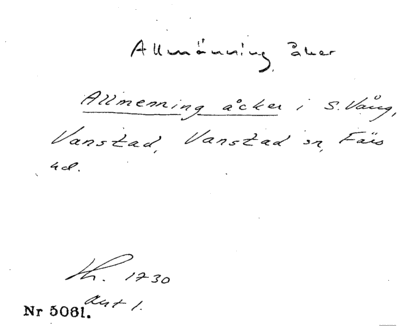 Allmänning åker
Allmenning åcker i S. Vång,
Vanstad, Vanstad sn, Färs
hd.
Lh. 1730
akt 1.
Nr 5061.